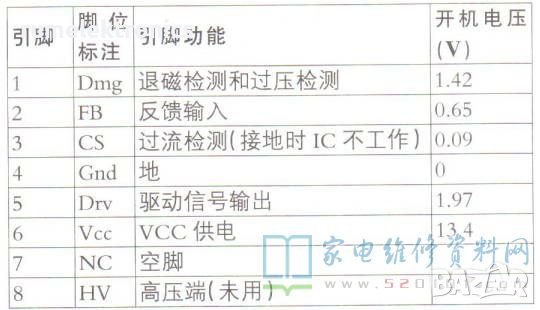 引脚 脚位标注 引脚功能 开机电压(V)
1 Dmg 退磁检测和过压检测 1.42
2 FB 反馈输入 0.65
3 CS 过流检测(接地时 IC 不工作) 0.09
4 Gnd 地 0
5 Drv 驱动信号输出 1.97
6 Vcc VCC 供电 13.4
7 NC 空脚
8 HV 高压端(未用)
家电维修资料网
BAZAR